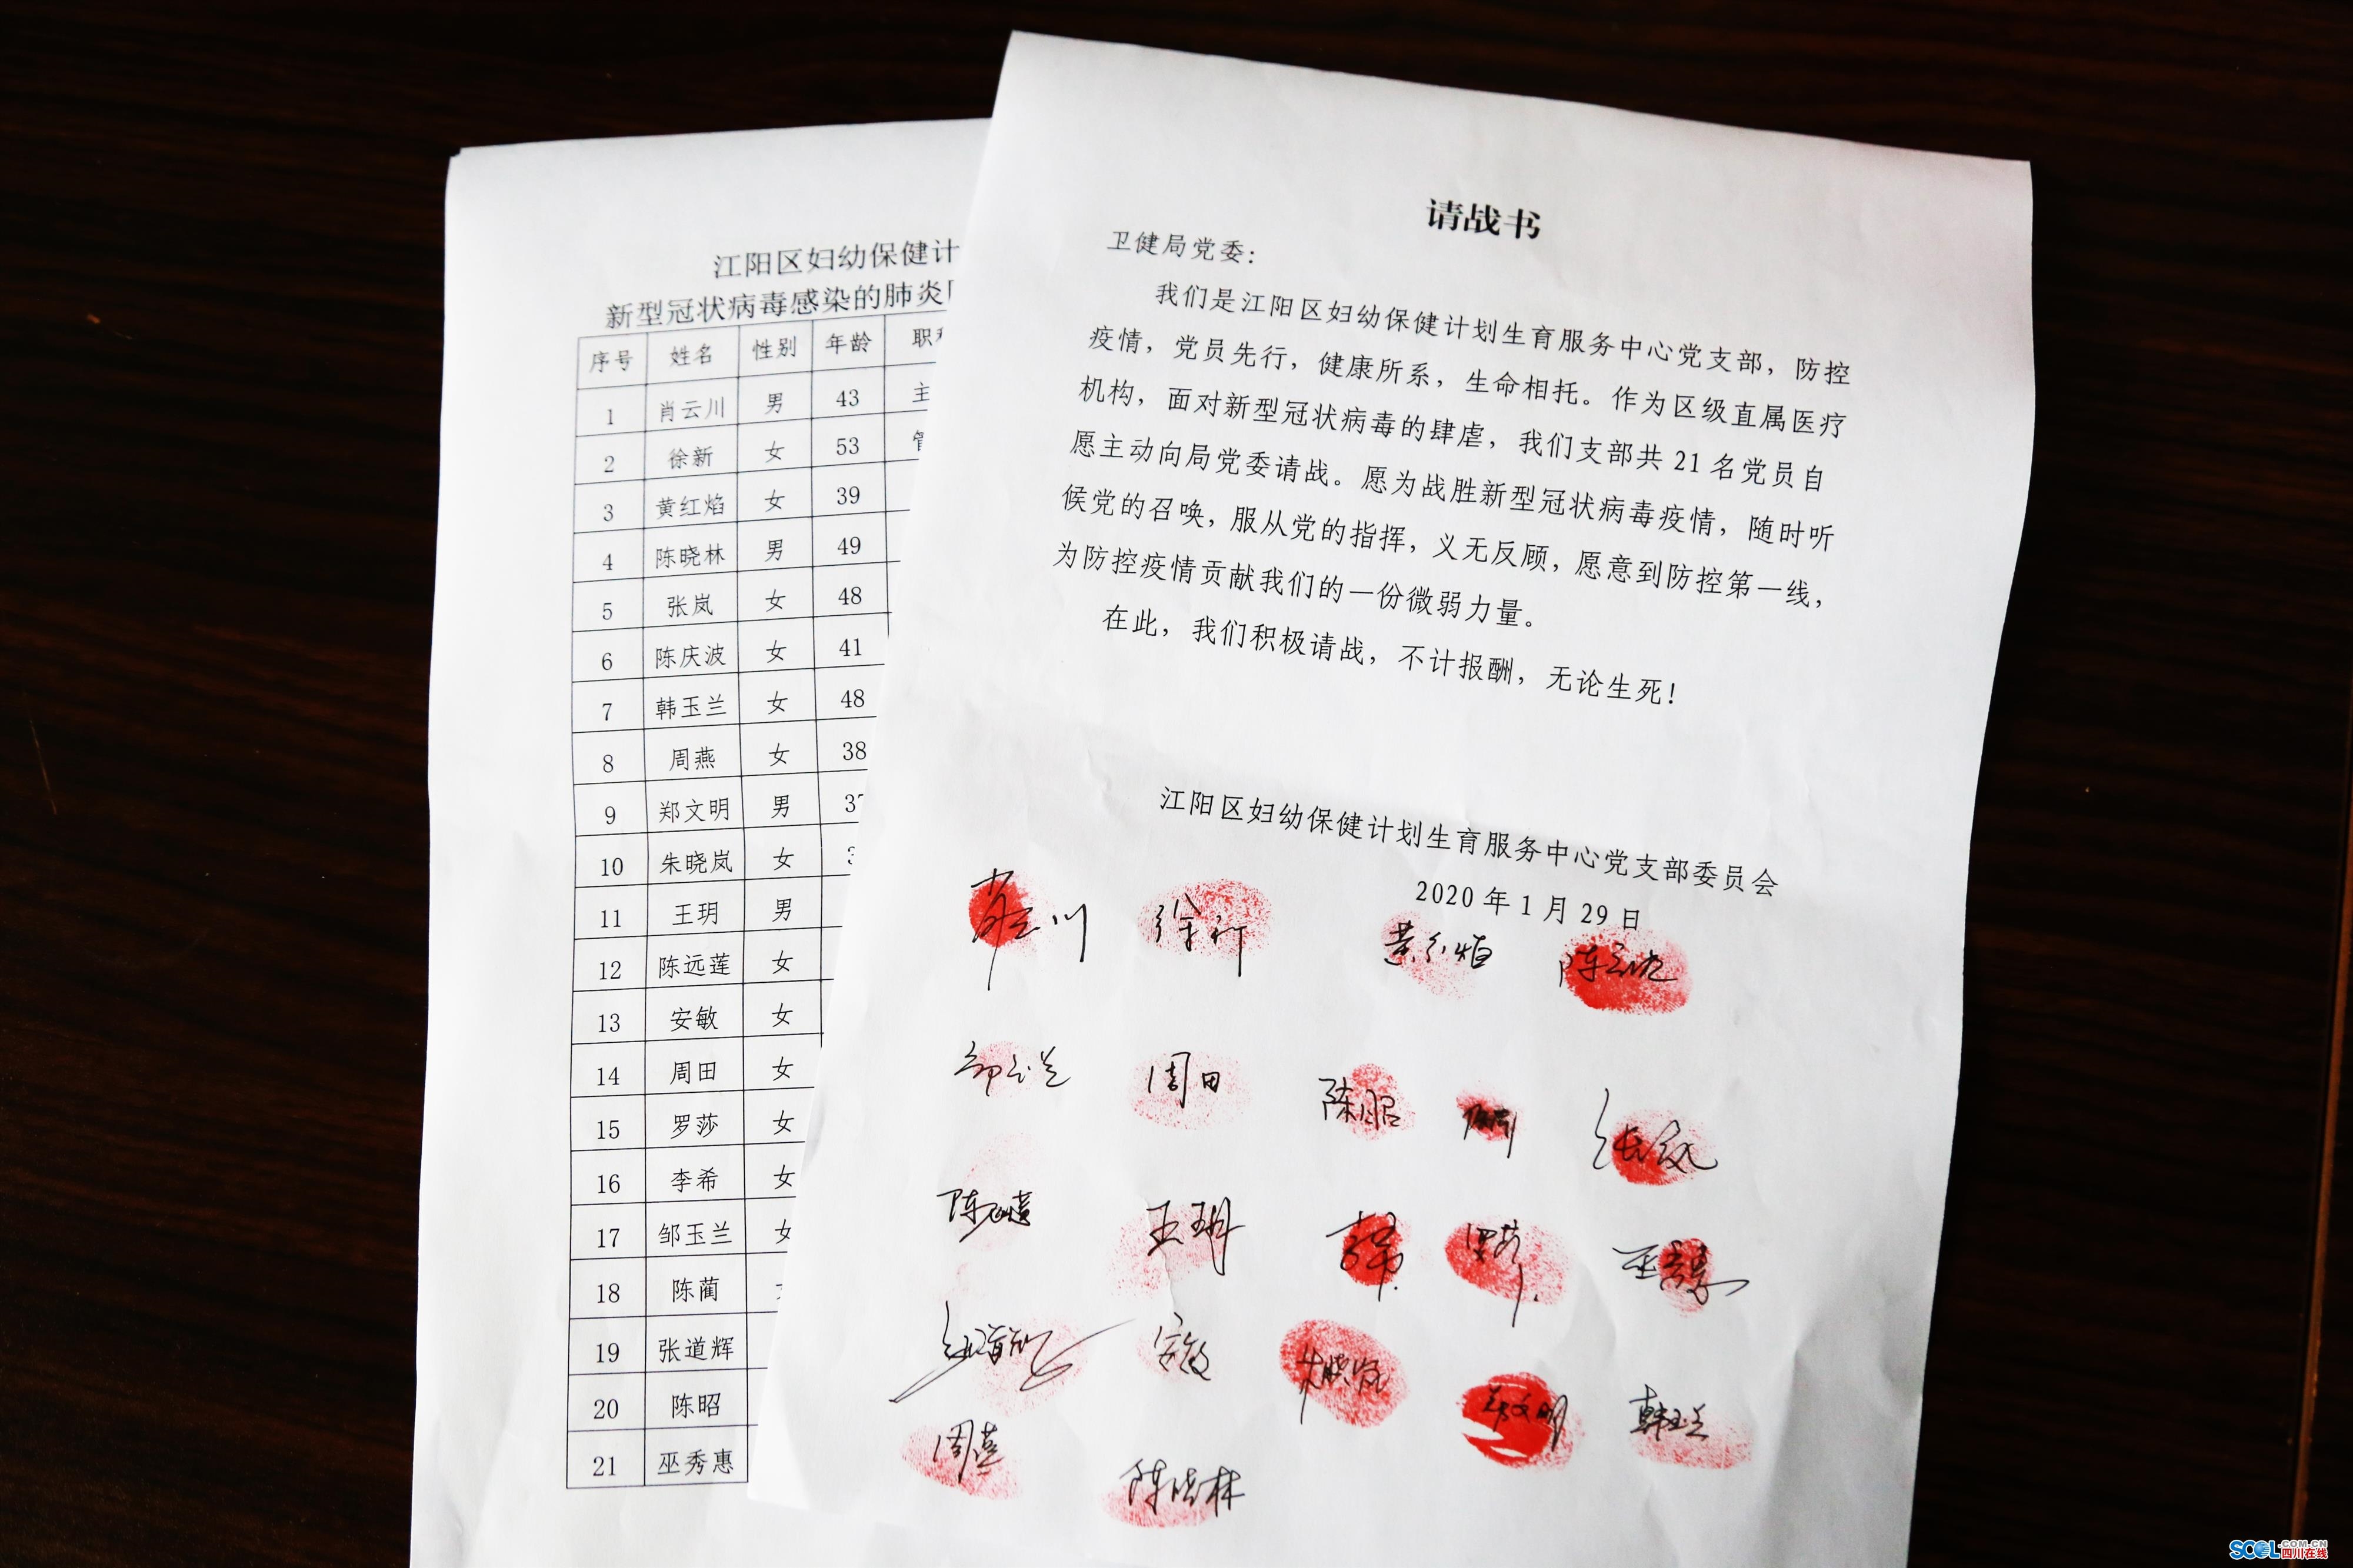 江阳区妇幼保健计
新型冠状病毒感染的肺炎
序号 姓名 性别 年龄 职
1 肖云川 男 43 主
2 徐新 女 53 管
3 黄红焰 女 39
4 陈晓林 男 49
5 张岚 女 48
6 陈庆波 女 41
7 韩玉兰 女 48
8 周燕 女 38
9 郑文明 男 37
10 朱晓岚 女 3
11 王玥 男
12 陈远莲 女
13 安敏 女
14 周田 女
15 罗莎 女
16 李希 女
17 邹玉兰 女
18 陈蔺
19 张道辉
20 陈昭
21 巫秀惠
请战书
卫健局党委：
我们是江阳区妇幼保健计划生育服务中心党支部，防控
疫情，党员先行，健康所系，生命相托。作为区级直属医疗
机构，面对新型冠状病毒的肆虐，我们支部共 21 名党员自
愿主动向局党委请战。愿为战胜新型冠状病毒疫情，随时听
候党的召唤，服从党的指挥，义无反顾，愿意到防控第一线，
为防控疫情贡献我们的一份微弱力量。
在此，我们积极请战，不计报酬，无论生死！
江阳区妇幼保健计划生育服务中心党支部委员会
2020 年 1 月 29 日
肖云川 徐新 黄红焰
邹玉兰 周田 陈昭
王玥 李希 罗莎 巫秀惠
张道辉 安敏 朱晓岚 郑文明 韩玉兰
周燕 陈晓林
SCOL.COM.CN
四川在线